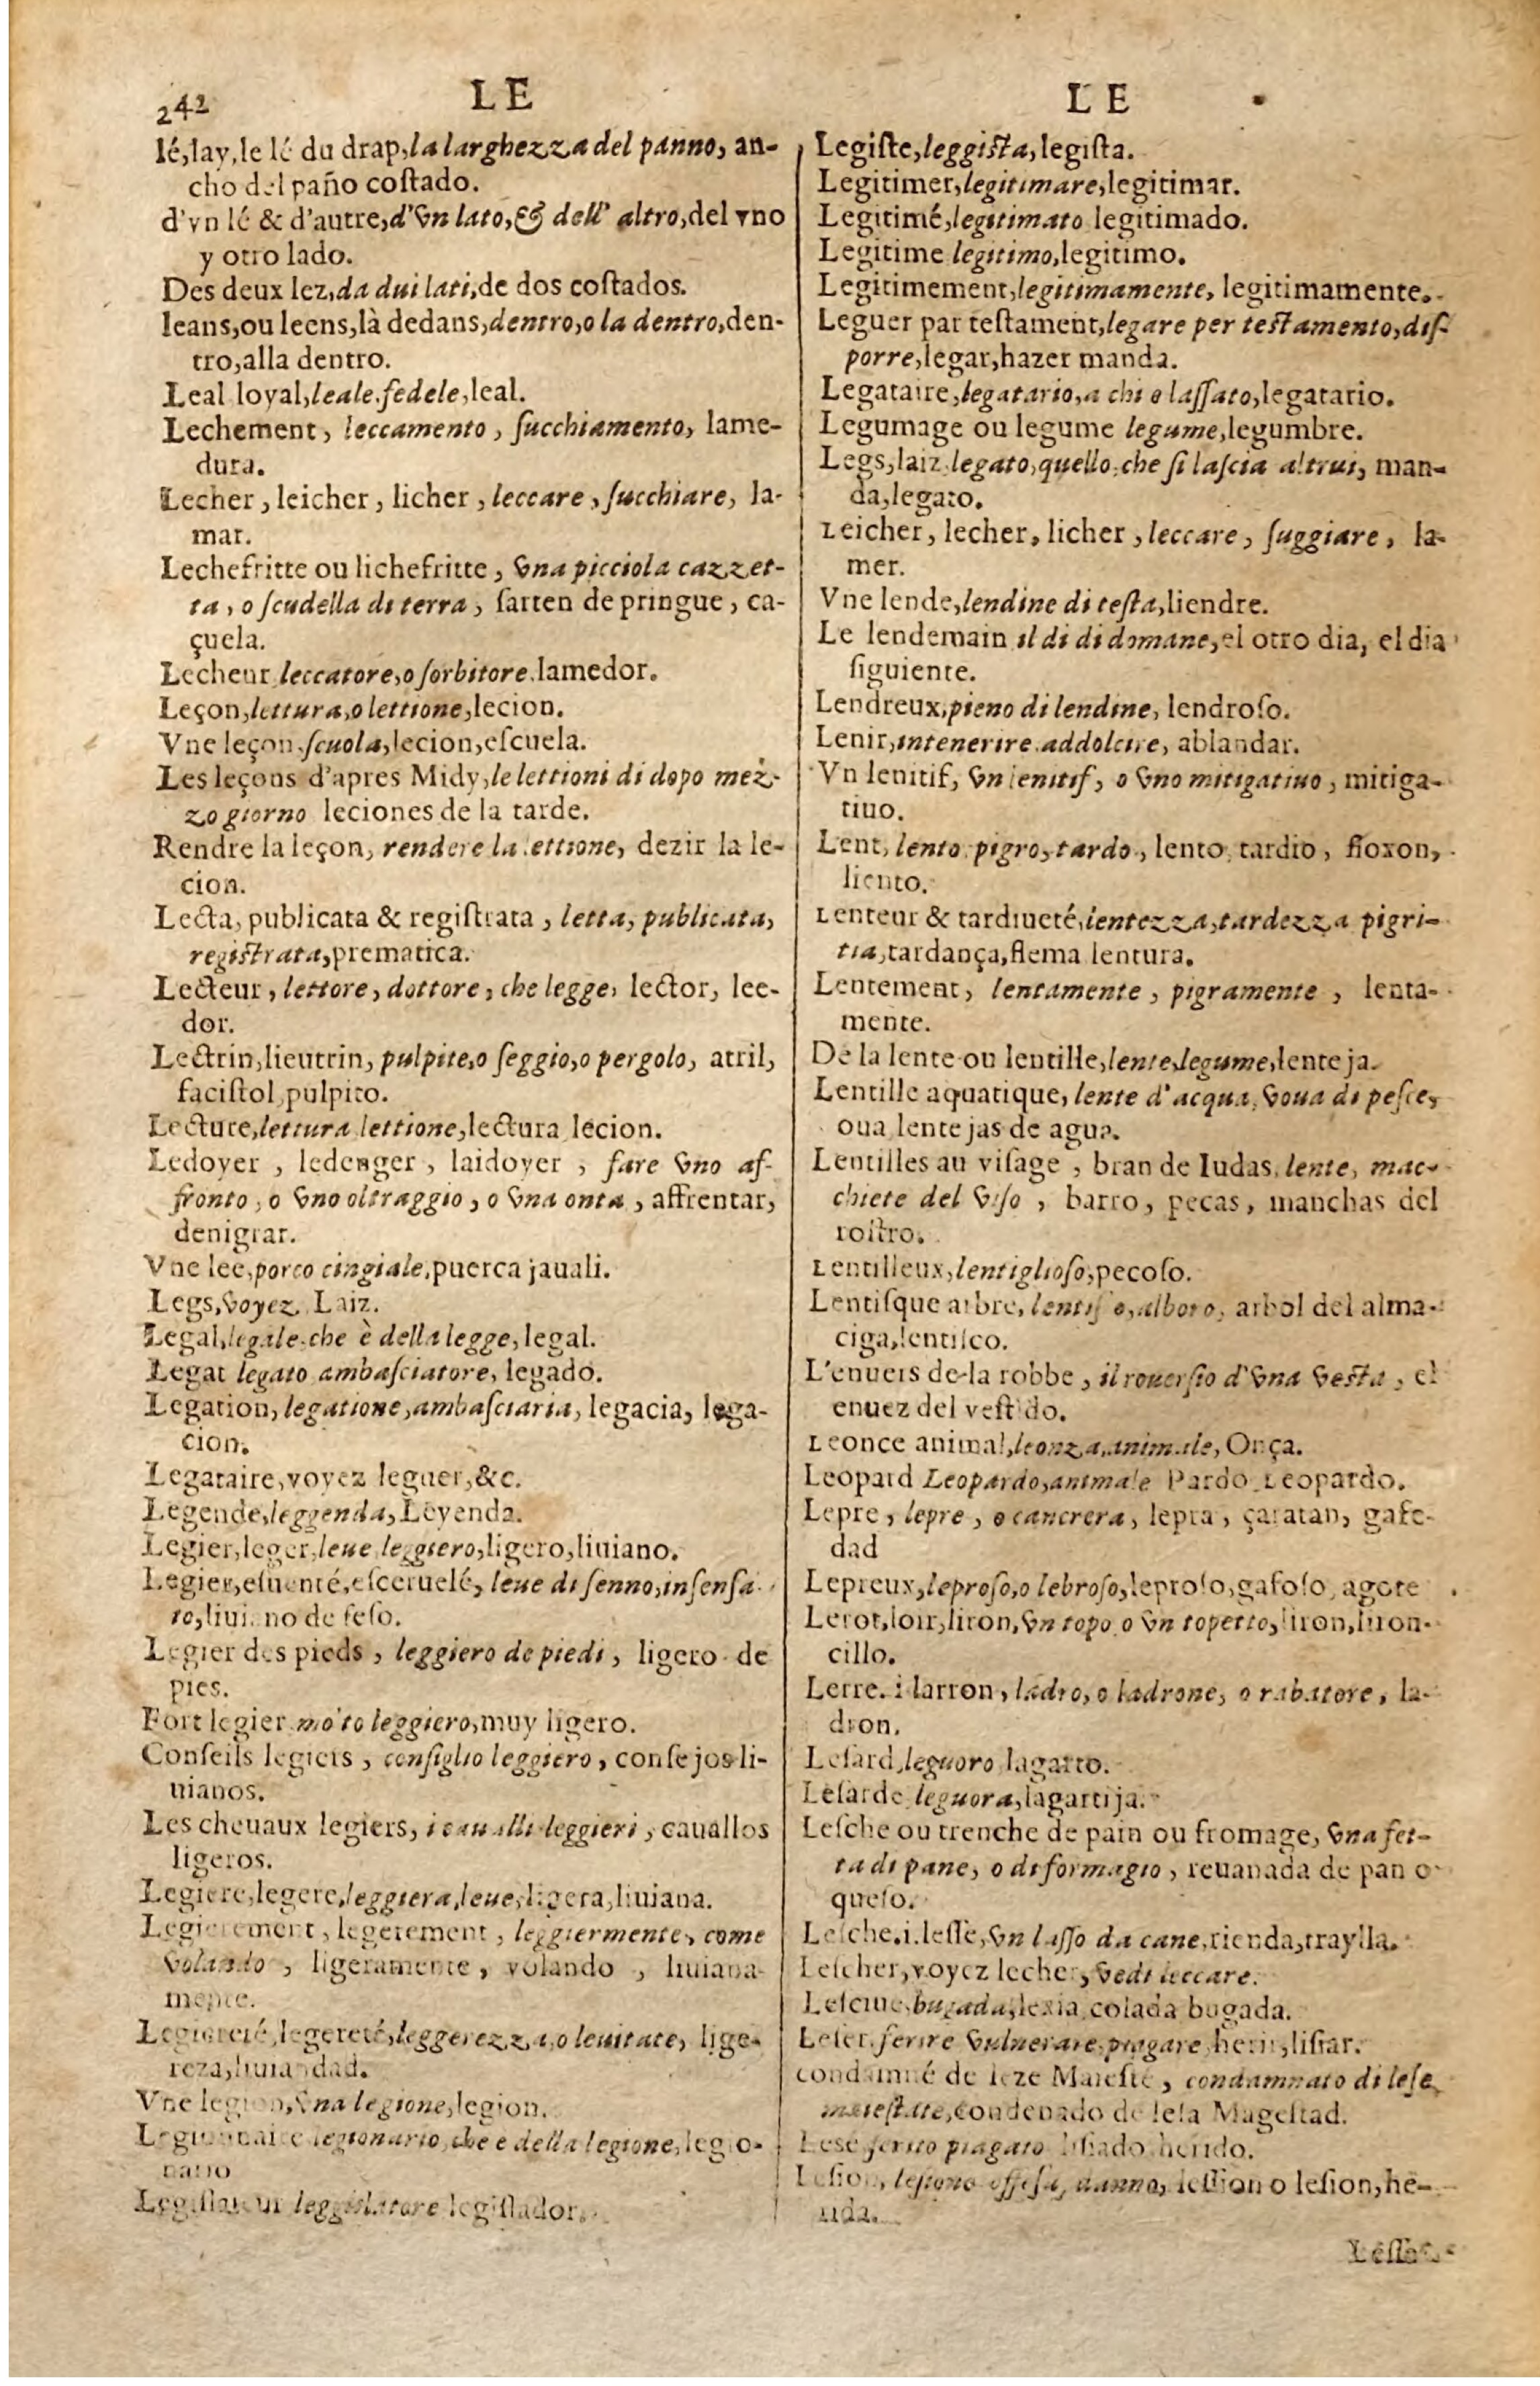 242 LE
lé,lay,le lé du drap,la larghezza del panno, an-
cho del paño coſtado.
d'vn lé & d'autre,d'vn lato,& dell' altro,del vno
y otro lado.
Des deux lez,da dui lati,de dos coſtados.
leans,ou leens,là dedans,dentro,o la dentro,den-
tro,alla dentro.
Leal loyal,leale.fedele,leal.
Lechement, leccamento, ſucchiamento, lame-
dura.
Lecher, leicher, licher, leccare, ſucchiare, la-
mar.
Lechefritte ou lichefritte, vna picciola cazzet-
ta, o ſcudella di terra, ſarten de pringue, ca-
çuela.
Lecheur leccatore,o ſorbitore.lamedor.
Leçon,lettura,o lettione,lecion.
Vne leçon.ſcuola,lecion,eſcuela.
Les leçons d'apres Midy,le lettioni di dopo mez-
zo giorno leciones de la tarde.
Rendre la leçon, rendere la lettione, dezir la le-
cion.
Lecta, publicata & regiſtrata, letta, publicata,
regiſtrata,prematica.
Lecteur, lettore, dottore, che legge, lector, lee-
dor.
Lectrin,lieutrin, pulpite,o ſeggio,o pergolo, atril,
faciſtol,pulpito.
Lecture,lettura lettione,lectura lecion.
Ledoyer, ledenger, laidoyer, fare vno af-
fronto, o vno oltraggio, o vna onta, affrentar,
denigrar.
Vne lee,porco cingiale,puerca jauali.
Legs,voyez Laiz.
Legal,legale.che è della legge,legal.
Legat legato ambaſciatore, legado.
Legation, legatione,ambaſciaria, legacia, lega-
cion.
Legataire,voyez leguer,&c.
Legende,leggenda,Leyenda.
Legier,leger,leue leggiero,ligero,liuiano.
Legier,eſuenté,eſceruelé, leue di ſenno,inſenſa-
to,liuiano de ſeſo.
Legier des pieds, leggiero de piedi, ligero de
pies.
Fort legier molto leggiero,muy ligero.
Conſeils legiers, conſiglio leggiero, conſejos li-
uianos.
Les cheuaux legiers, i caualli leggieri, cauallos
ligeros.
Legiere,legere,leggiera,leue,ligera,liuiana.
Legierement, legerement, leggiermente, come
volando, ligeramente, volando, liuiana-
mente.
Legiereté,legereté,leggerezza,o leuitate, lige-
reza,liuiandad.
Vne legion,vna legione,legion.
Legionnaire legionario,che e della legione,legio-
nario
Legiſlateur leggislatore legiſlador.
LE
Legiſte,leggiſta,legiſta.
Legitimer,legitimare,legitimar.
Legitimé,legitimato legitimado.
Legitime legitimo,legitimo.
Legitimement,legitimamente, legitimamente.
Leguer par teſtament,legare per teſtamento,diſ-
porre,legar,hazer manda.
Legataire,legatario,a chi e laſſato,legatario.
Legumage ou legume legume,legumbre.
Legs,laiz legato,quello,che ſi laſcia altrui, man-
da,legato.
Leicher, lecher, licher, leccare, ſuggiare, la-
mer.
Vne lende,lendine di teſta,liendre.
Le lendemain il di di domane,el otro dia, el dia
ſiguiente.
Lendreux,pieno di lendine, lendroſo.
Lenir,intenerire addolcire, ablandar.
Vn lenitif, vn lenitif, o vno mitigatiuo, mitiga-
tiuo.
Lent, lento pigro,tardo, lento tardio, floxon,
liento.
Lenteur & tardiueté,lentezza,tardezza pigri-
tia,tardança,flema lentura.
Lentement, lentamente, pigramente, lenta-
mente.
De la lente ou lentille,lente,legume,lenteja.
Lentille aquatique, lente d'acqua, voua di peſce,
oua lentejas de agua.
Lentilles au viſage, bran de Iudas, lente, mac-
chiete del viſo, barro, pecas, manchas del
roſtro.
Lentilleux,lentiglioſo,pecoſo.
Lentiſque arbre, lentiſco,alboro, arbol del alma-
ciga,lentiſco.
L'enuers de la robbe, il rouerſio d'vna veſta, el
enuez del veſtido.
Leonce animal,leonza,animale, Onça.
Leopard Leopardo,animale Pardo Leopardo.
Lepre, lepre, o cancrera, lepra, çaratan, gafe-
dad
Lepreux,leproſo,o lebroſo,leproſo,gafoſo agote
Lerot,loir,liron,vn topo o vn topetto,liron,liron-
cillo.
Lerre. i larron, ladro, o ladrone, o rabatore, la-
dron.
Leſard,leguoro lagarto.
Leſarde leguora,lagartija.
Leſche ou trenche de pain ou fromage, vna fet-
ta di pane, o di formagio, reuanada de pan o
queſo.
Leſche.i.leſſe,vn laſſo da cane,rienda,traylla.
Leſcher,voyez lecher, vedi leccare.
Leſciue,bugada,lexia colada bugada.
Leſer,ferire vulnerare,piagare,herir,liſiar.
condamné de leze Maieſté, condamnato di leſe
maieſtate,condenado de leſa Mageſtad.
Leſé ferito piagato liſiado herido.
Leſion, leſione offeſa, danno, leſſion o leſion,he-
rida.